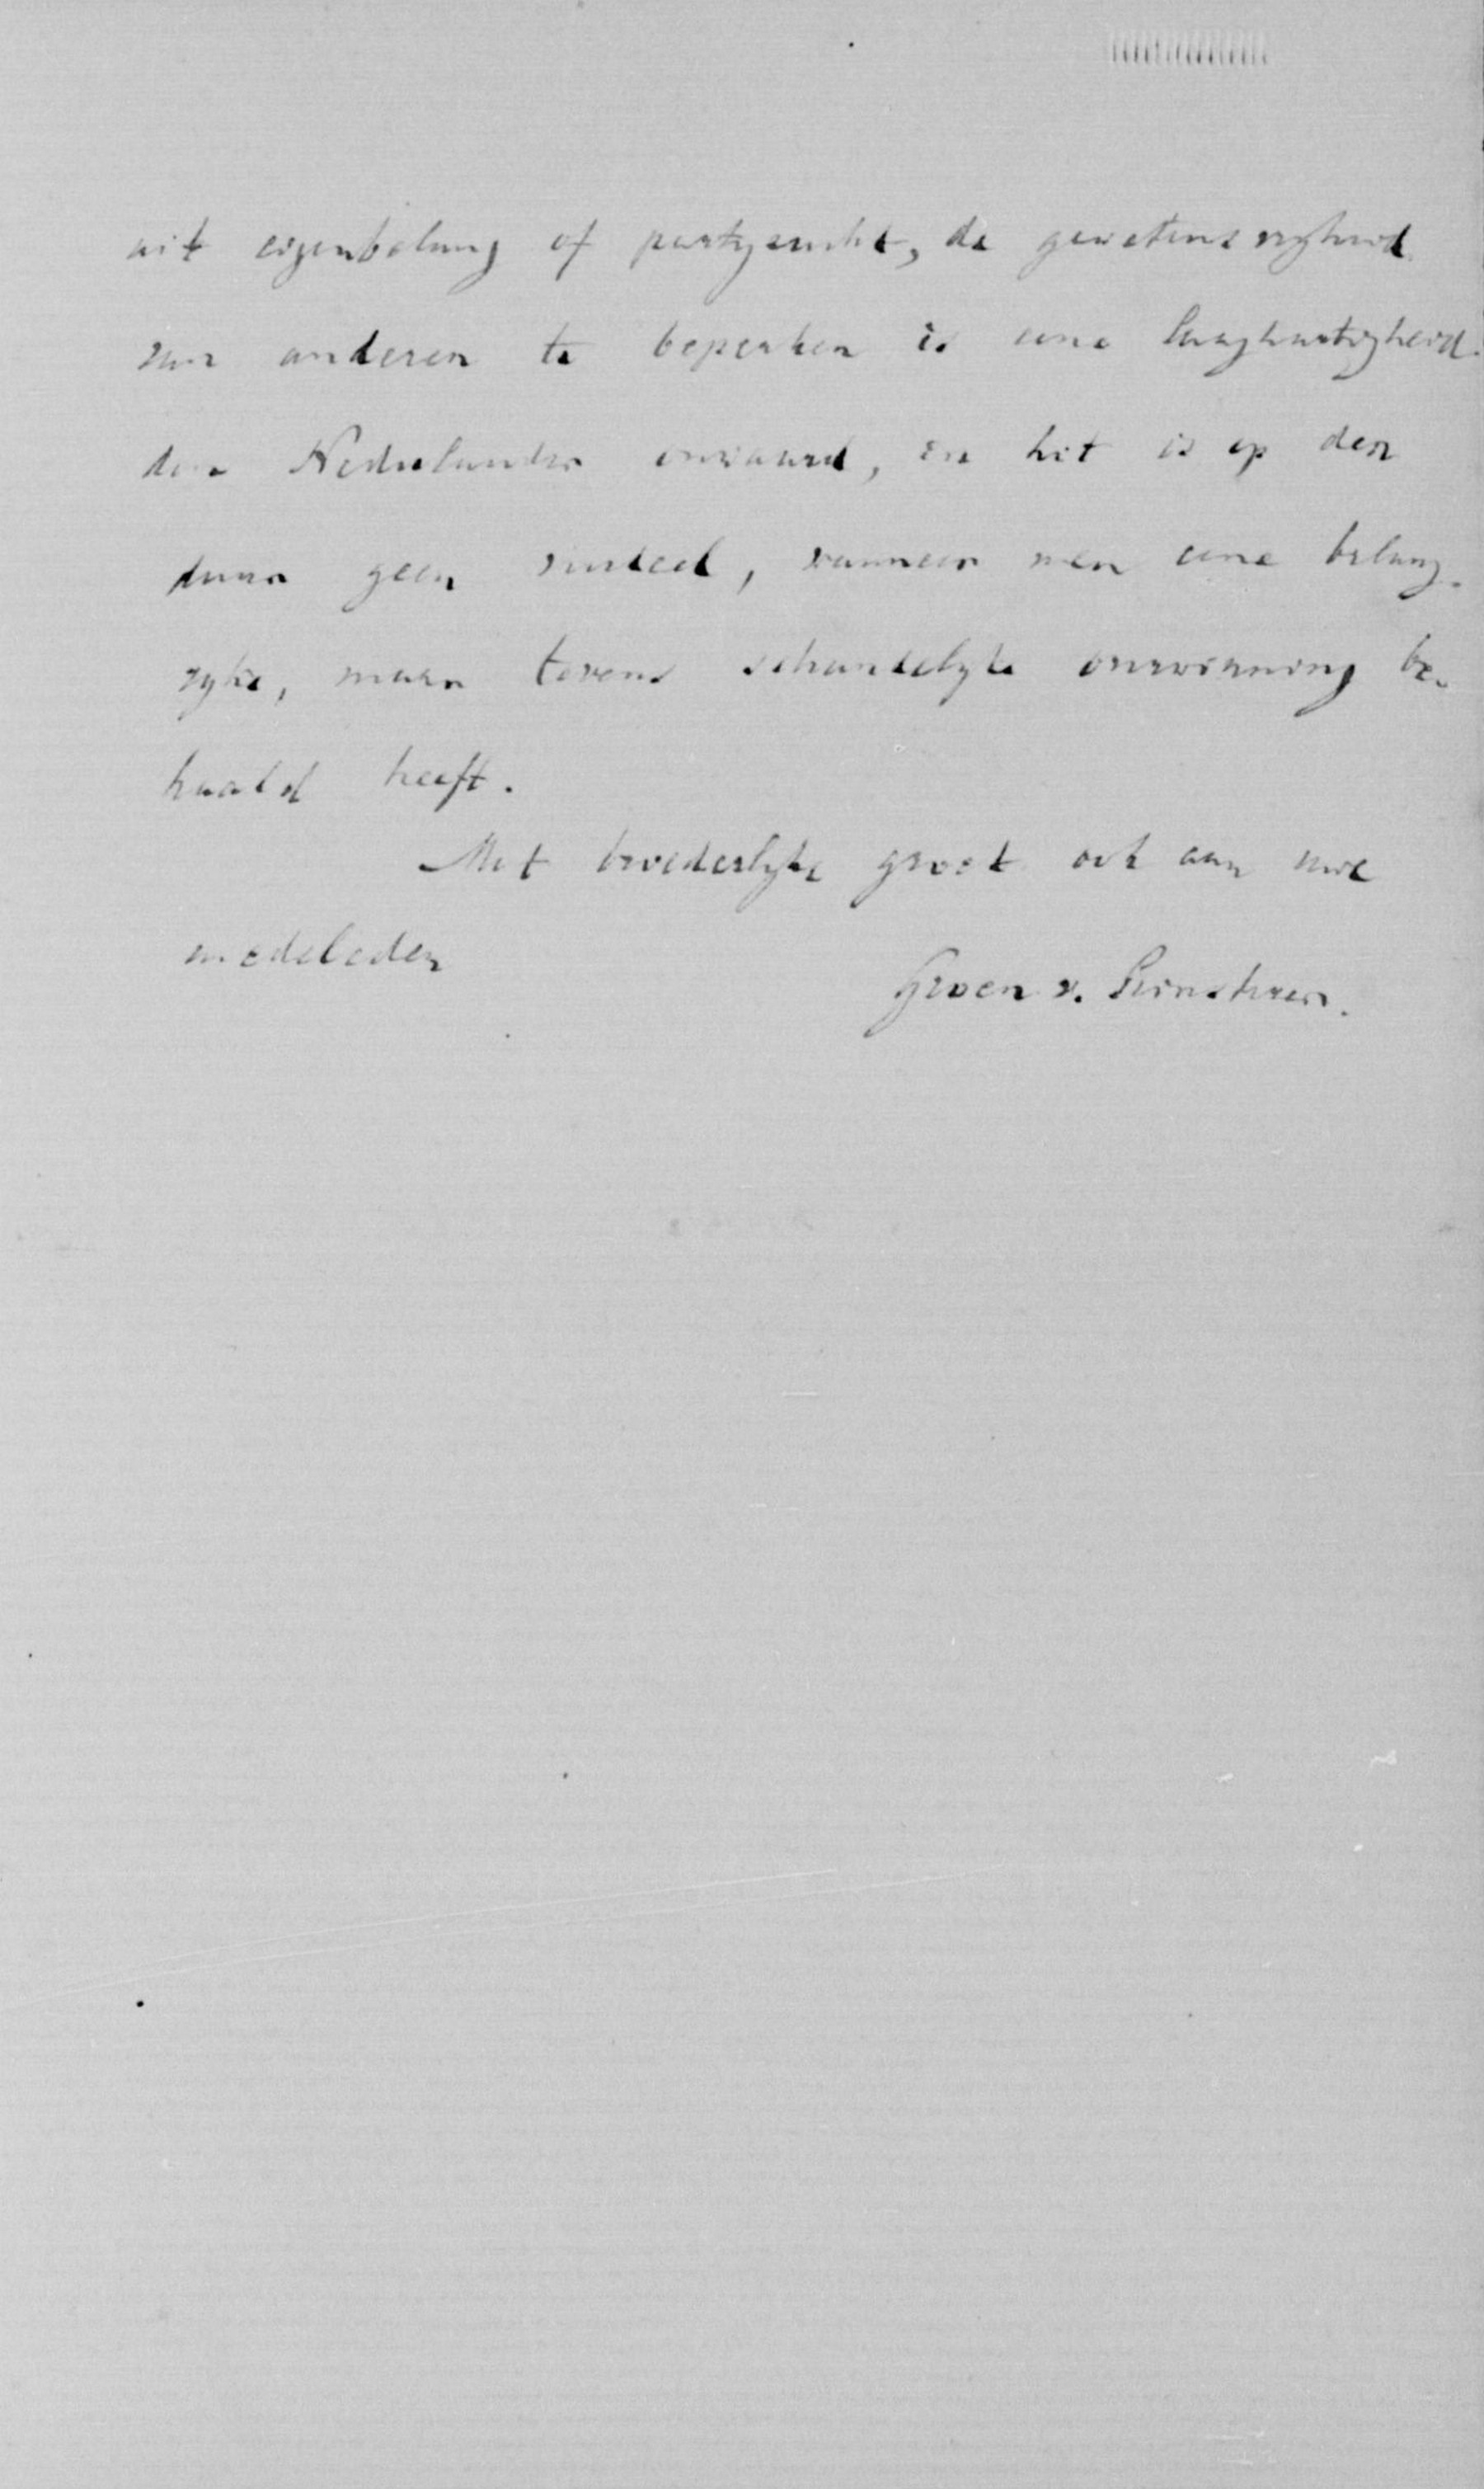 uit eigenbelang of partyzucht, de gewetensvryheid
van anderen te beperken is eene laaghartigheid
den Nederlander onwaard, en het is op den
duur geen voordeel, wanneer men eene belang-
ryke, maar tevens schandelyke overwinning be-
haald heeft.
Met broederlyke groet ook aan uwe
medeleden
Groen v. Prinsterer.